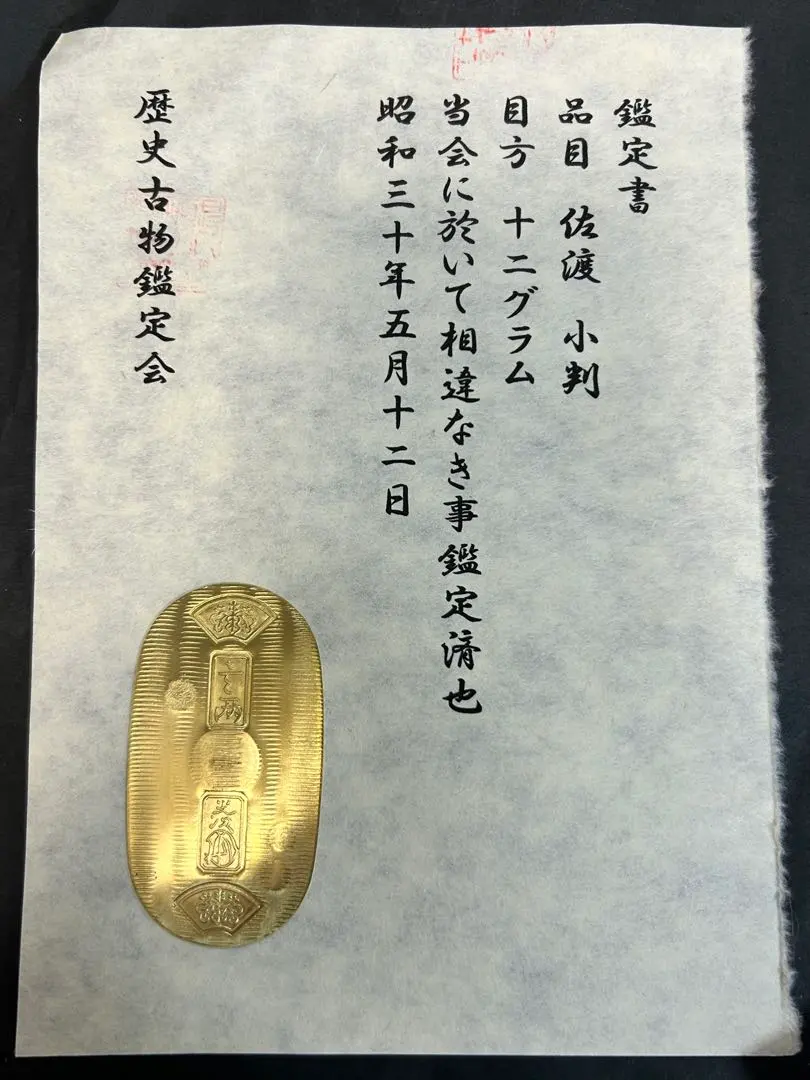 鑑定書
品目 佐渡 小判
目方 十二グラム
当会に於いて相違なき事鑑定済也
昭和三十年五月十二日
歴史古物鑑定会